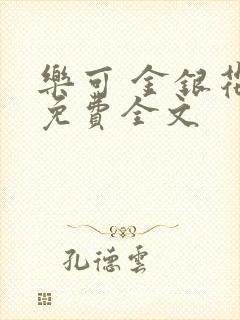 樂可 金銀花
免費全文
孔德雲